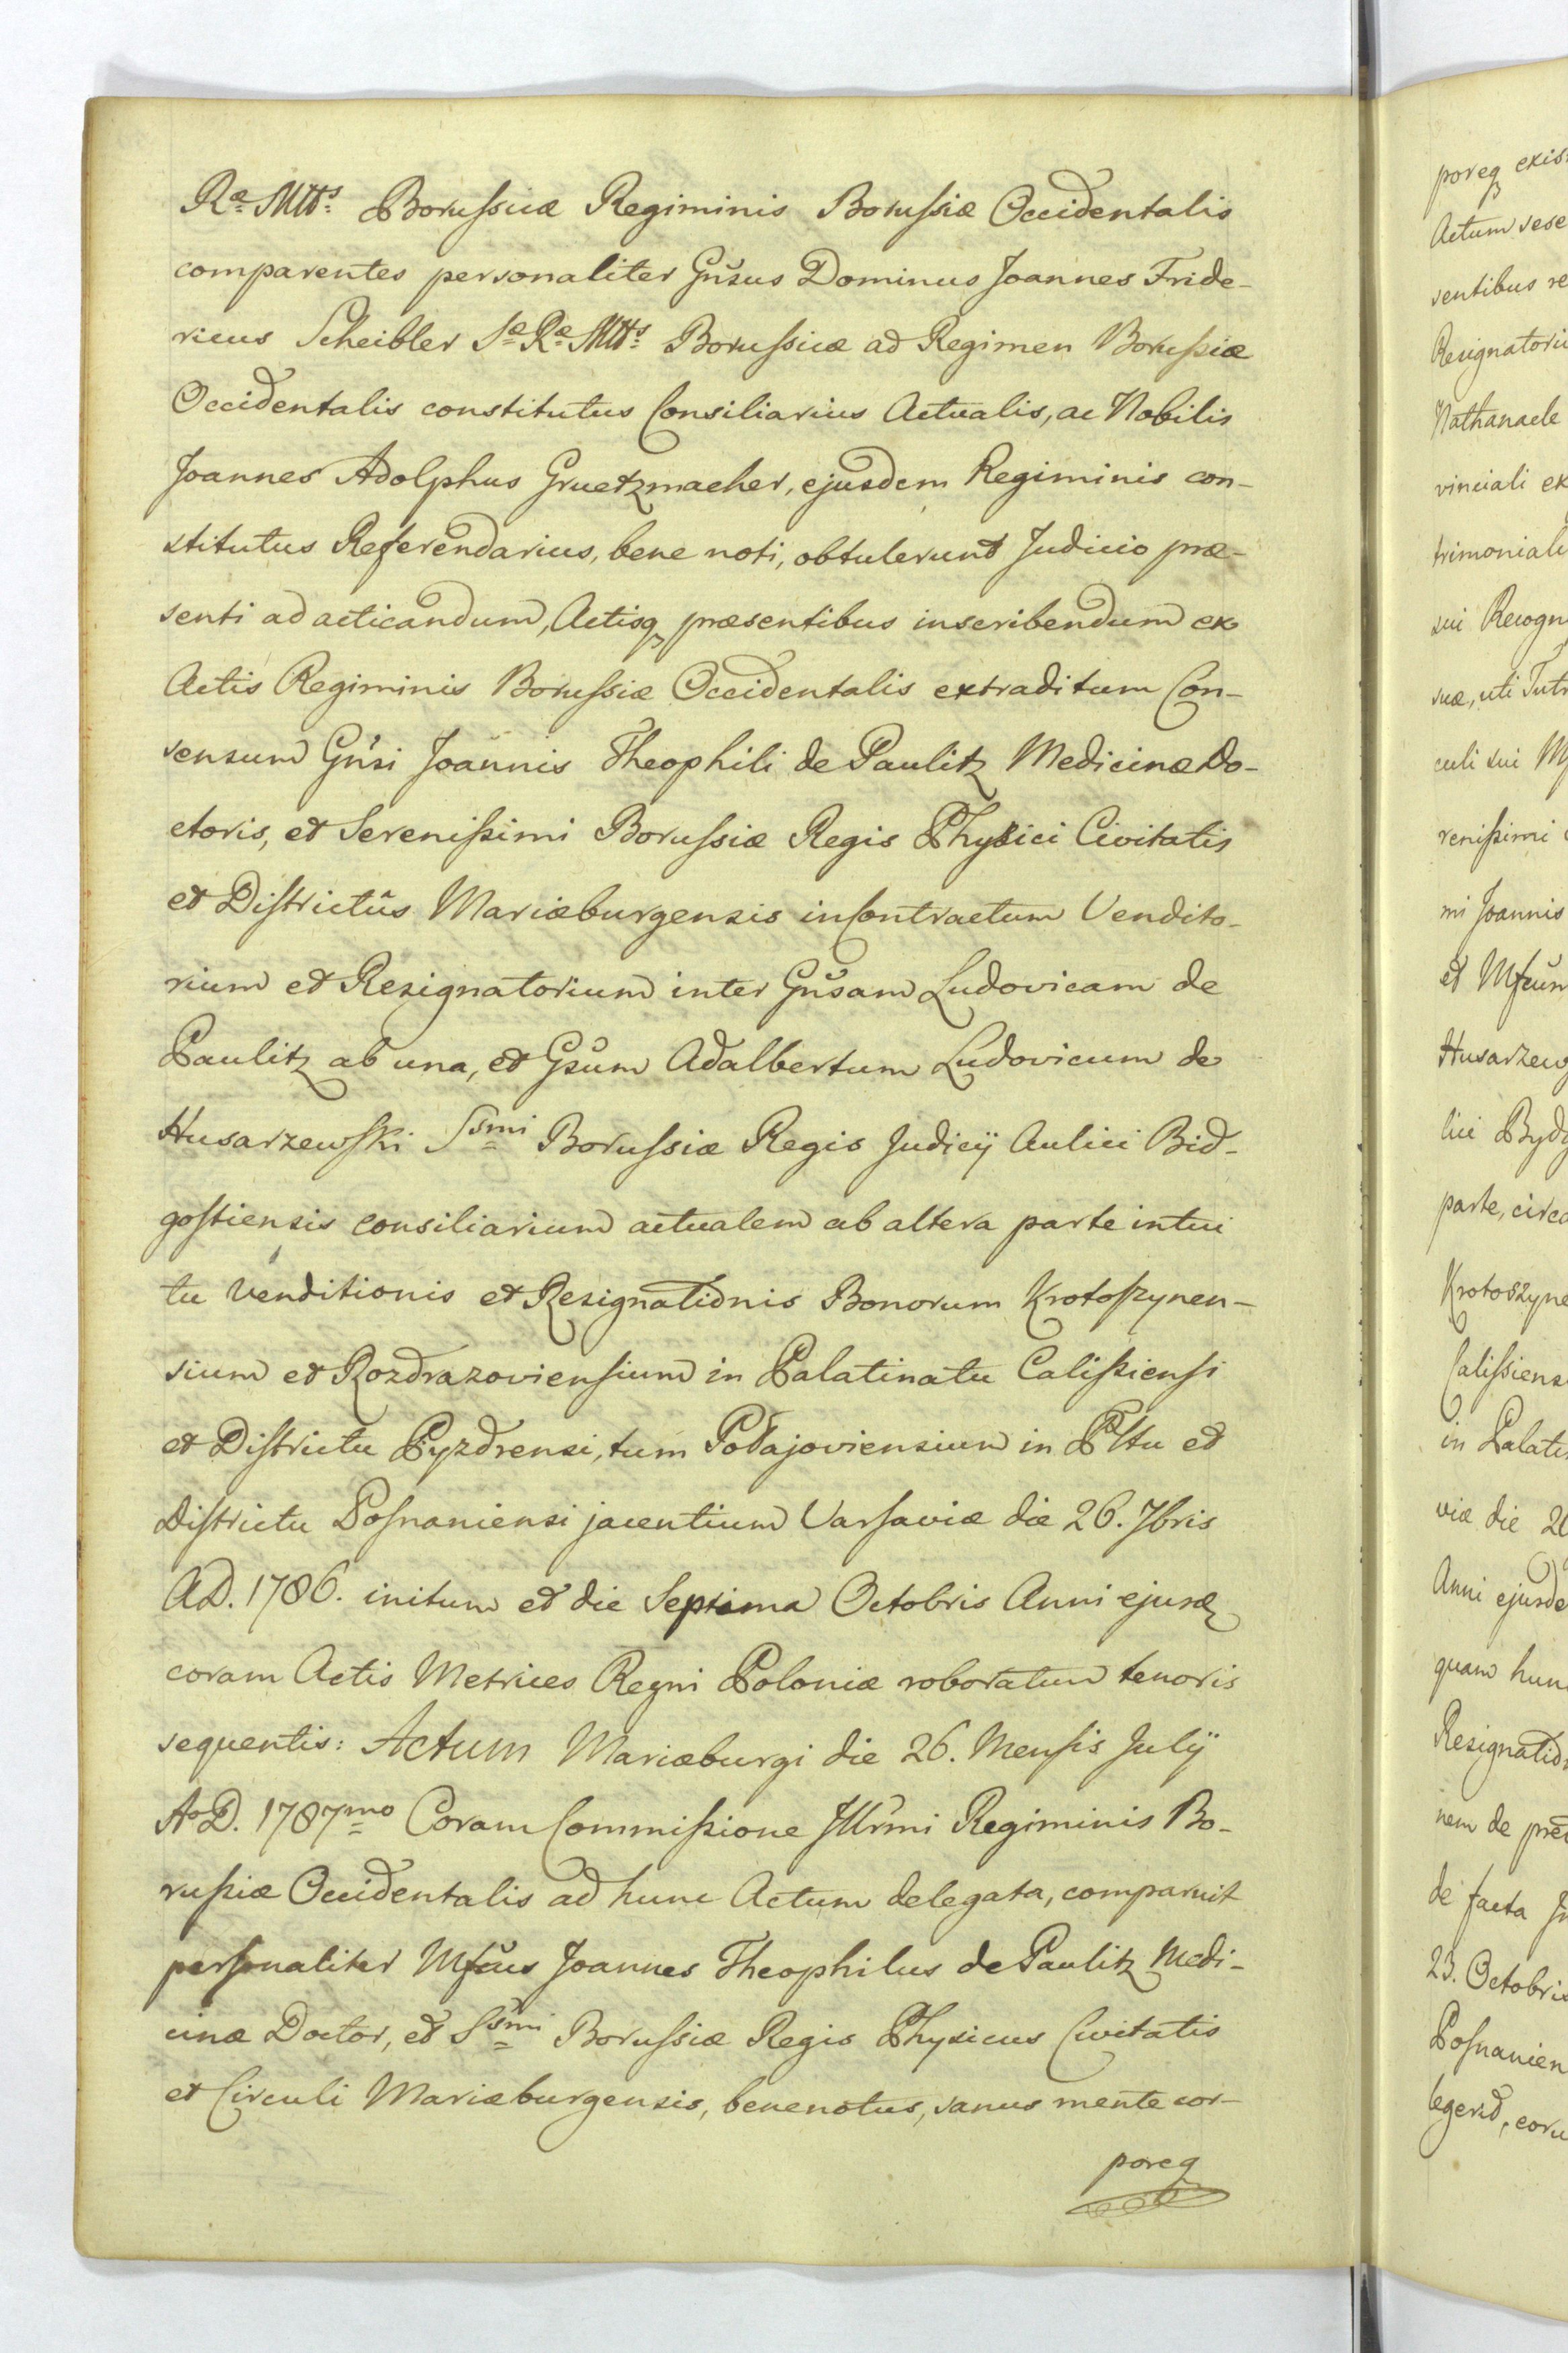 Ræ Mttis Borussicæ Regiminis Borussiæ Occidentalis
comparentes personaliter Gnŝus Dominus Joannes Fride-
ricus Scheibler Sæ Ræ Mttis Borussicæ ad Regimen Borussiæ
Occidentalis constitutus Consiliarius Actualis, ac Nobilis
Joannes Adolphus Gruetzmacher, ejusdem Regiminis con-
stitutus Referendarius, bene noti, obtulerunt Judicio præ-
senti ad acticandum, Actisq præsentibus inscribendum ex
Actis Regiminis Borussiæ Occidentalis extraditum Con-
sensum Gnŝi Joannis Theophili de Paulitz Medicinæ Do-
ctoris, et Serenissimi Borussiæ Regis Physici Civitatis
et Districtûs Mariæburgensis in Contractum Vendito-
rium et Resignatorium inter Gnŝam Ludovicam de
Paulitz ab una, et Gsum Adalbertum Ludovicum de
Husarzewski Ssmi Borussiæ Regis Judicij Aulici Bid-
gostiensis consiliarium actualem ab altera parte intui
tu Venditionis et Resignationis Bonorum Krotoszynen-
sium et Rozdrazoviensium in Palatinatu Calissiensi
et Districtu Pyzdrensi, tum Podajoviensium in Pltu et
Districtu Posnaniensi jacentium Varsaviæ die 26. 7bris
AD. 1786. initum et die Septima Octobris Anni ejusd
coram Actis Metrices Regni Poloniæ roboratum tenoris
sequentis: Actum Mariæburgi die 26. Mensis Julij
AoD. 1787mo Coram Commissione Jllrmi Regiminis Bo-
russiæ Occidentalis ad hunc Actum delegata, comparuit
personaliter Mfcus Joannes Theophilus de Paulitz Medi-
cinæ Doctor, et Ssmi Borussiæ Regis Physicus Civitatis
et Circuli Mariæburgensis, benenotus, sanus mente cor-
poreq
poreq exis
Actum sese
sentibus re
Resignatori
Nathanaele
vinciali ex
trimoniali
sui Recogn
suæ, uti Tut
culi sui M
renissimi
mi Joannis
et Mfcum
Husarzew
lici Bydg
parte, circa
Krotoszyne
Calissiens
in Palati
viæ die 2
Anni ejusde
quam hun
Resignatio
nem de præ
de facta
23. Octobris
Posnanien
legend, coru